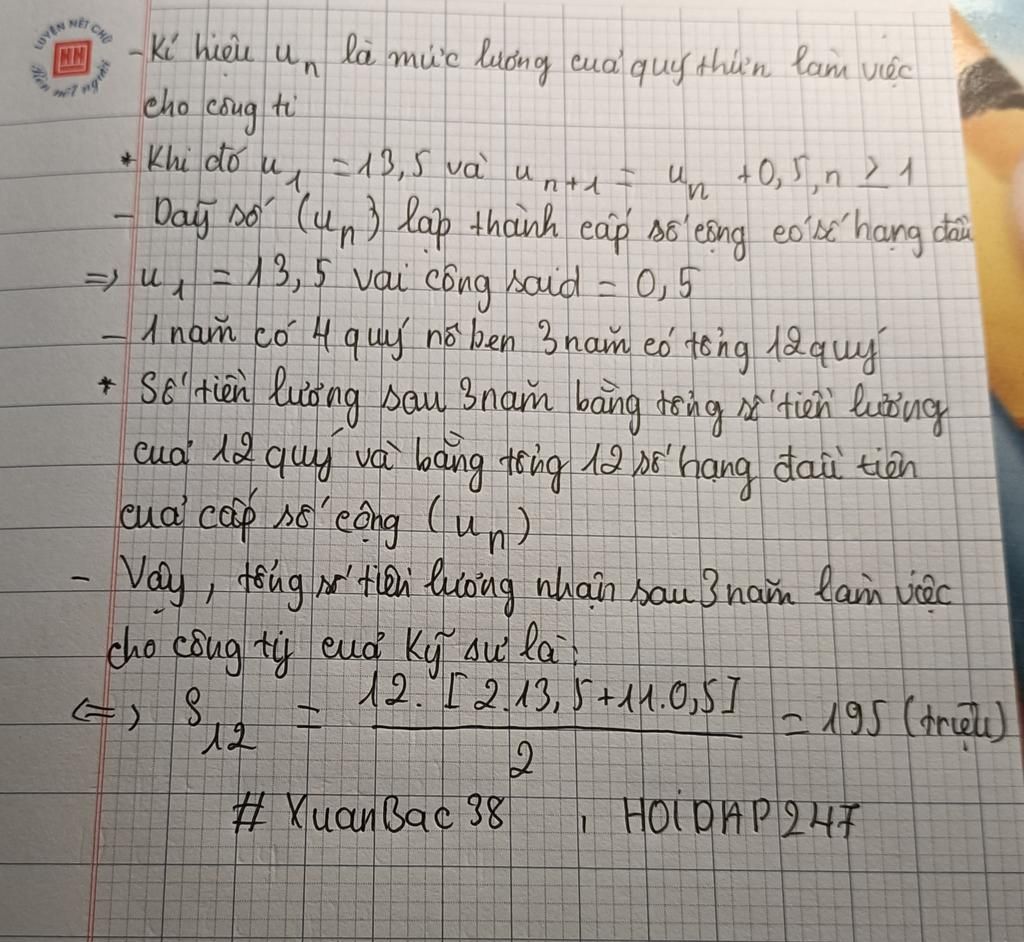 LUYỆN NÉT CHỮ
NN
Rèn nết người
- Kí hiệu uₙ là mức lương của quý thứ n làm việc
cho công ti
* Khi đó u₁ = 13,5 và uₙ₊₁ = uₙ + 0,5, n ≥ 1
- Dãy số (uₙ) lập thành cấp số cộng có số hạng đầu
=> u₁ = 13,5 vai công sai d = 0,5
- 1 năm có 4 quý nô ben 3 năm có tổng 12 quý
* Số tiền lương sau 3 năm bằng tổng số tiền lương
của 12 quý và bằng tổng 12 số hạng đầu tiên
của cấp số cộng (uₙ)
- Vậy, tổng số tiền lương nhận sau 3 năm làm việc
cho công ty của Kỹ sư là:
<=> S₁₂ = 12. [2.13,5+11.0,5] / 2 = 195 (triệu)
# XuanBac38 , HOIDAP247